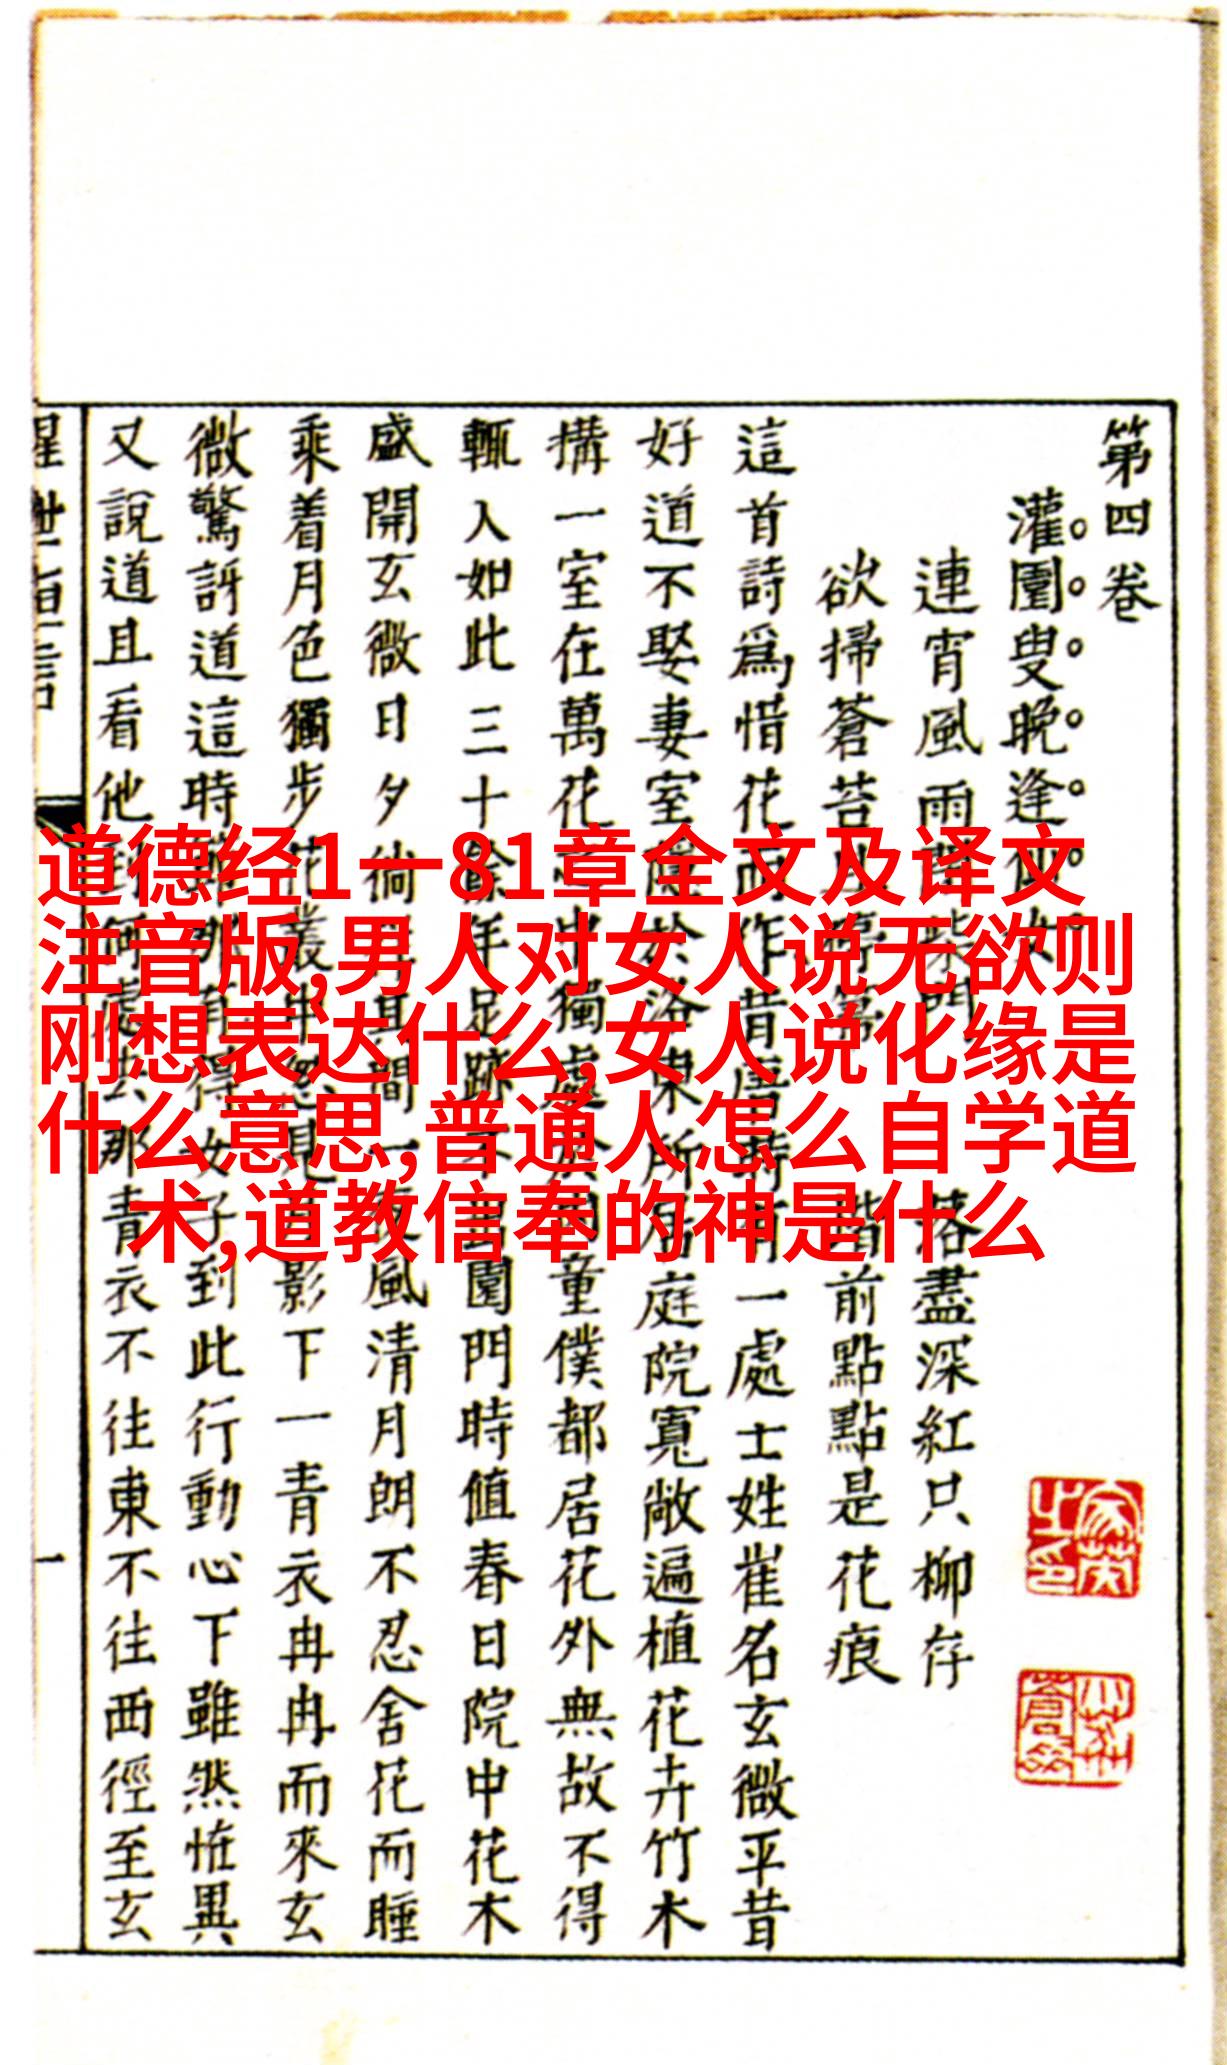 道德经1一81章全文及译文
注音版,男人对女人说无欲则
刚想表达什么,女人说化缘是
什么意思,普通人怎么自学道
术,道教信奉的神是什么
第四卷
灌園叟晚逢仙女
連宵風雨閉柴門 落盡深紅只柳存
欲掃蒼苔且停帚 階前點點是花痕
這首詩爲惜花而作昔唐時有一處士姓崔名玄微平昔
好道不娶妻室隱於洛東所居庭院寬敞遍植花卉竹木
搆一室在萬花之中獨處於內童僕都居花外無故不得
輒入如此三十餘年足跡不出園門時值春日院中花木
盛開玄微日夕徜徉其間一夜風清月朗不忍舍花而睡
乘着月色獨步花叢中忽見月影下一青衣冉冉而來玄
微驚訝道這時節那得有女子到此行動心下雖然怪異
又說道且看他到何處去那青衣不往東不往西徑至玄
一